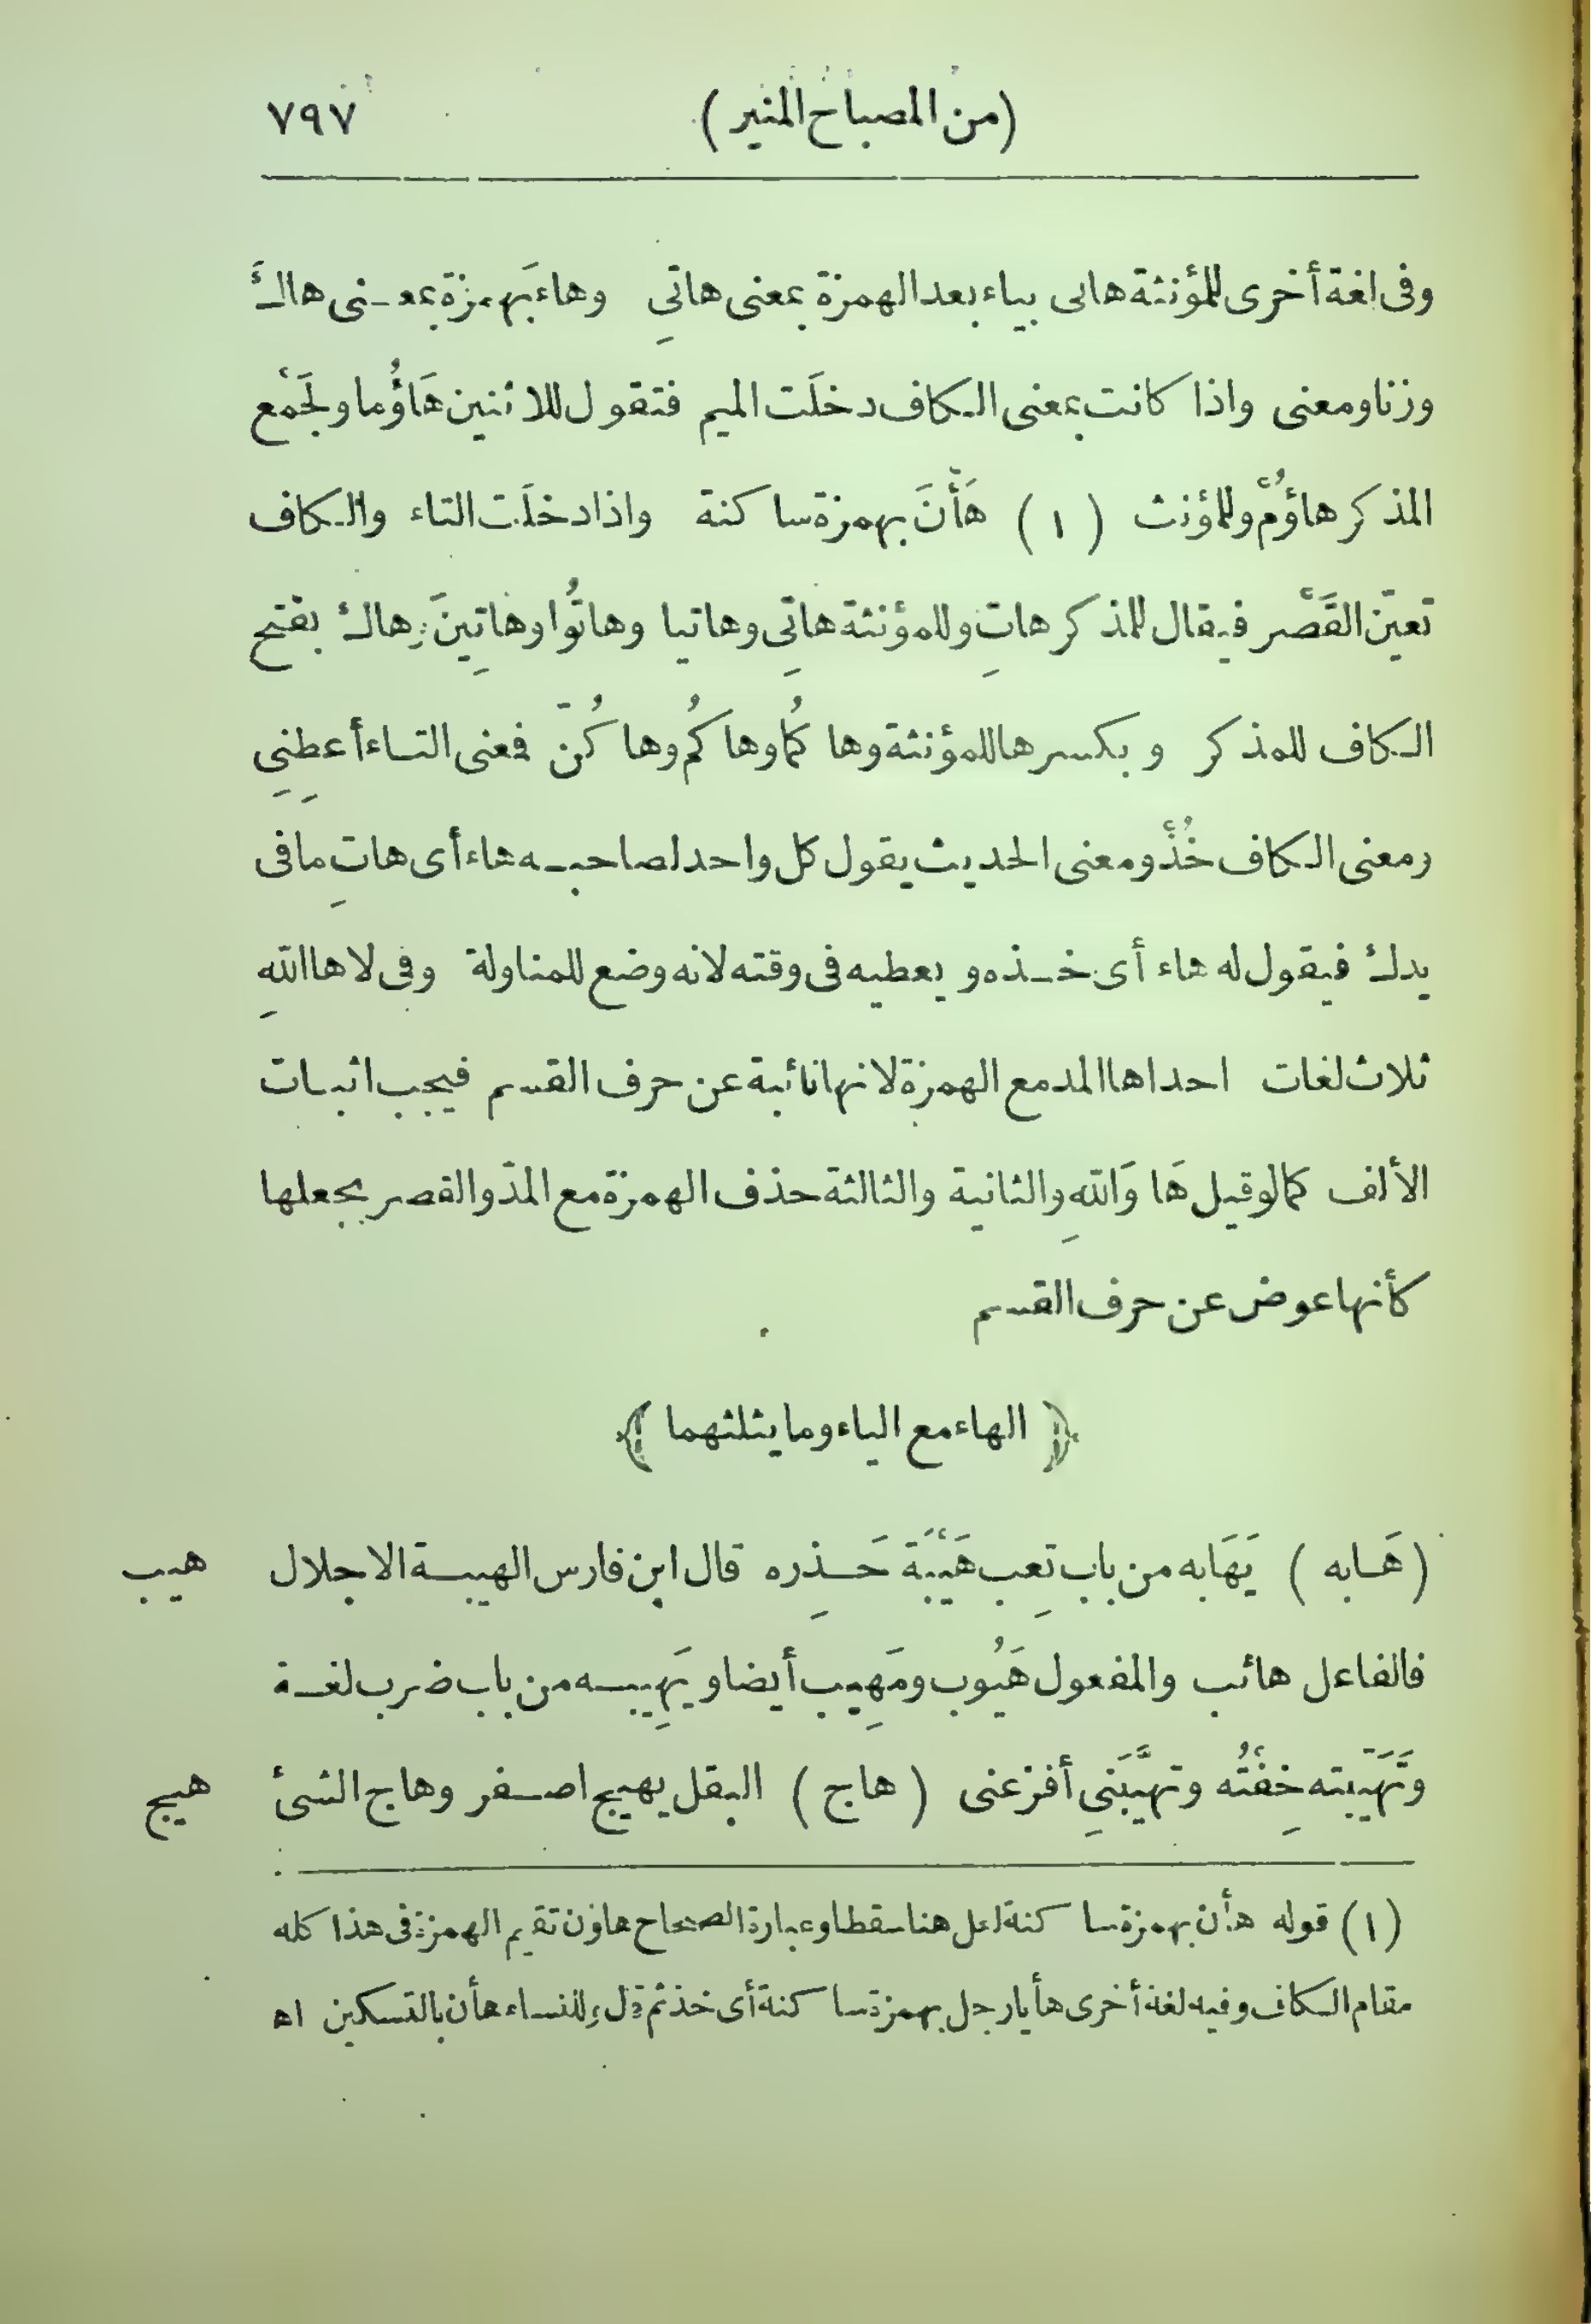 (من المصباح المنير) ٧٩٧
وفى لغة أخرى للمؤنثة هاىى بياء بعد الهمزة بمعنى هاتِى وهاءَ بهمزة بمعنى هاكَ
وزنا ومعنى واذا كانت بمعنى الكاف دخلَت الميم فتقول للاثنين هَاؤُما ولجَمْع
المذكر هاؤُمْ وللمؤنث (١) هَأْنَ بهمزة ساكنة واذا دخلَت التاء والكاف
تعيّن القَصْر فيقال للمذكر هاتِ وللمؤنثة هاتِى وهاتيا وهاتُوا وهاتِينَ وهاك بفتح
الكاف للمذكر وبكسرها للمؤنثة وها كُما وها كُم وها كُنّ فمعنى التاء أعطِنِى
ومعنى الكاف خُذْ ومعنى الحديث يقول كل واحد لصاحبه هاء أى هاتِ ما فى
يدك فيقول له هاء أى خذه ويعطيه فى وقته لانه وضع للمناولة وفى لا ها اللهِ
ثلاث لغات احداها المد مع الهمزة لانها نائبة عن حرف القسم فيجب اثبات
الألف كما لو قيل هَا وَاللهِ والثانية والثالثة حذف الهمزة مع المدّ والقصر بجعلها
كأنها عوض عن حرف القسم
﴿ الهاء مع الياء وما يثلثهما ﴾
(هَابه) يَهَابه من باب تعِب هَيْبَة حَذِره قال ابن فارس الهيبة الاجلال هيب
فالفاعل هائب والمفعول هَيُوب ومَهِيب أيضا ويَهِيبه من باب ضرب لغة
وتَهَيّبته خِفْتُه وتهيَّبَنِى أفزعنى (هاج) البقل يهيج اصفر وهاج الشئ هيج
(١) قوله هأن بهمزة ساكنة لعل هنا سقطا وعبارة الصحاح هاؤن تقيم الهمزة فى هذا كله
مقام الكاف وفيه لغة أخرى هأ يا رجل بهمزة ساكنة أى خذ ثم قال وللنساء هأن بالتسكين اه